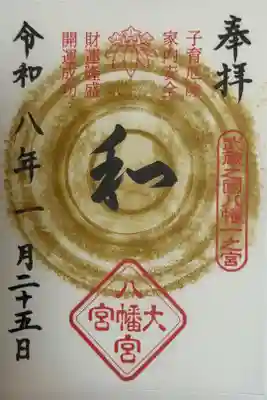 奉拝
武蔵之国八幡一之宮
子育厄除
家内安全
和
財運隆盛
開運成功
大八幡宮宮
令和八年一月二十五日